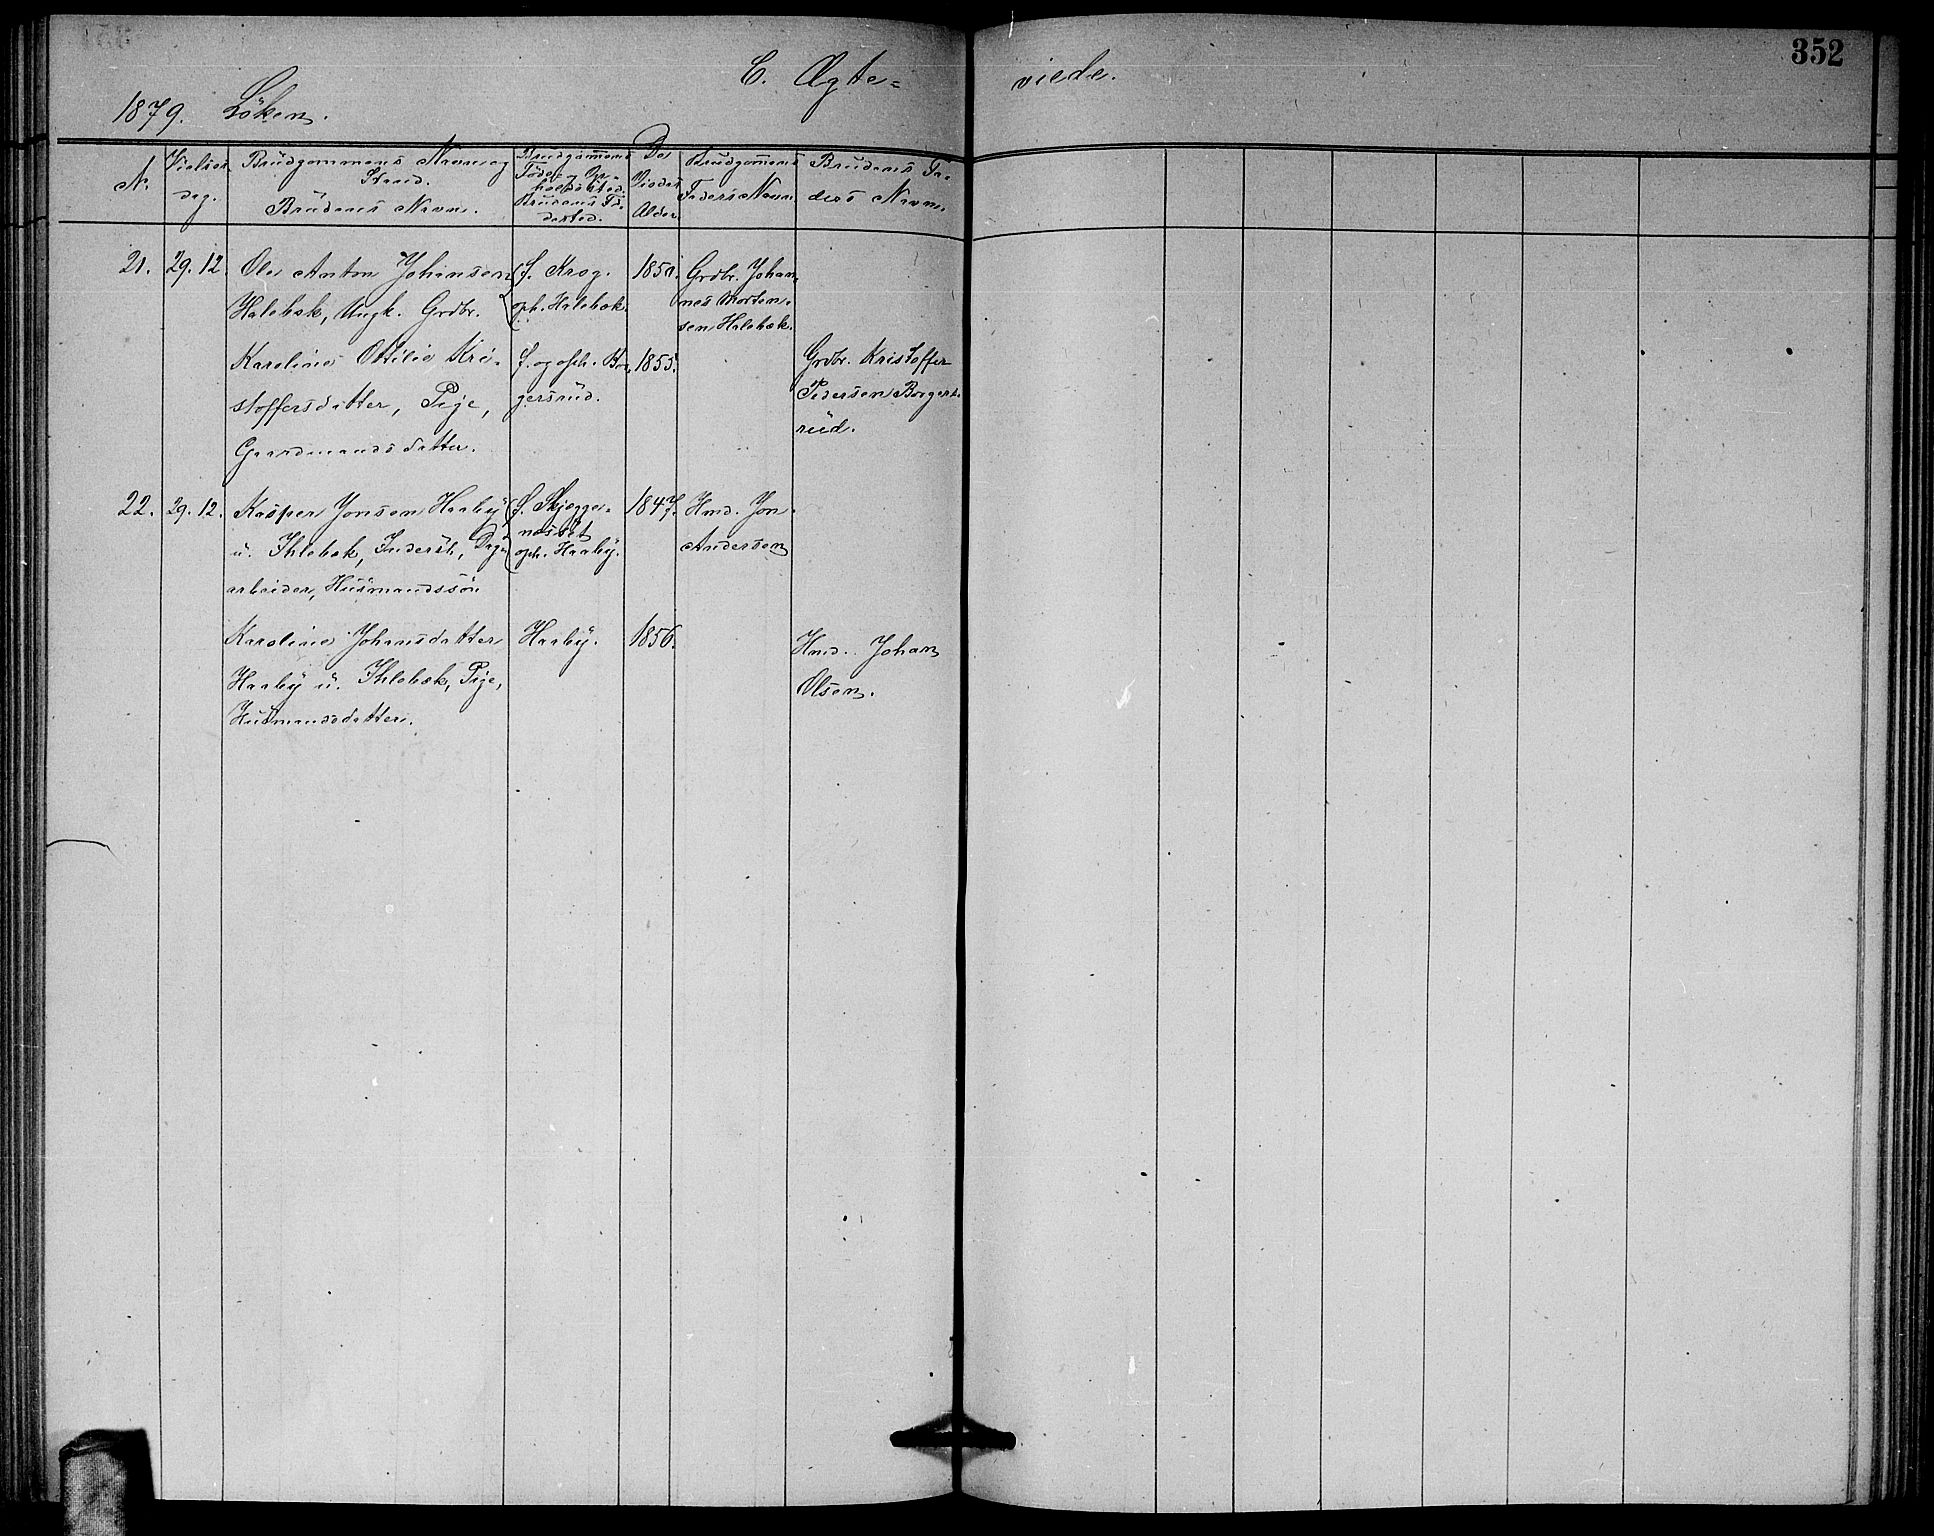 352
C. Ægte= viede.
1879. Löken.
No.
Vielses-
dag.
Brudgommens Navn og
Stand.
Brudens Navn.
Brudgommens
Föde- og Op-
holdssted.
Brudens Fö-
dested.
De
Viedes
Alder
Brudgommens
Faders Navn
Brudens Fa-
ders Navn.
21. 29. 12.
Ole Anton Johansen
Halebæk, Ungk. Grdbr.
f. Krog.
oph. Halebæk.
1851.
Grdbr. Johan-
nes Morten-
sen Halebæk.
Karoline Otilie Kri-
stoffersdatter, Pige,
Gaardmandsdatter.
f. og oph. Bor-
gersrud.
1855.
Grdbr. Kristoffer
Pedersen Borgers-
rud.
22. 29. 12.
Kasper Jonsen Haaby
u. Ihlebæk, Inderst, Dag-
arbeider, Husmandssön
f. Skjægge-
nesset
oph. Haaby.
1847.
Hmd. Jon
Andersen
Karoline Johansdatter
Haaby u. Ihlebæk, Pige,
Husmandsdatter.
Haaby.
1856.
Hmd. Johan
Olsen.